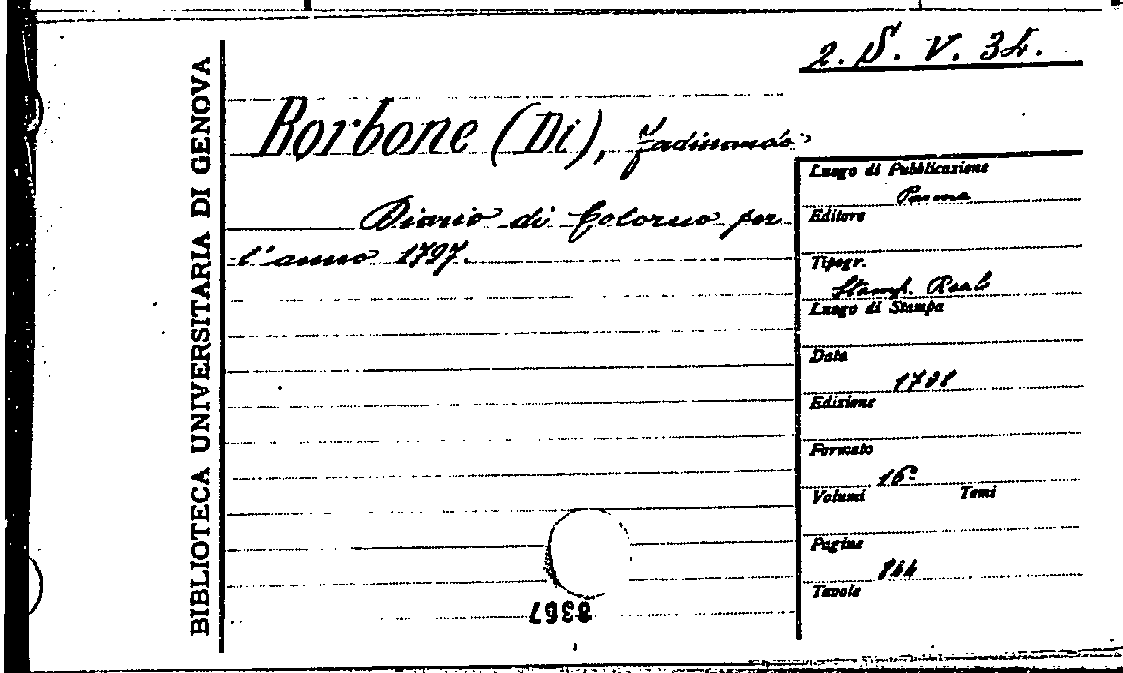 2. S. V. 34.
BIBLIOTECA UNIVERSITARIA DI GENOVA
Borbone (Di), Ferdinando
Diario di Colorno per
l'anno 1797.
Luogo di Pubblicazione
Parma
Editore
Tipogr.
Stamp. Reale
Luogo di Stampa
Data
Edizione
Formato
16º
Volumi Tomi
Pagine
144
Tavole
8367